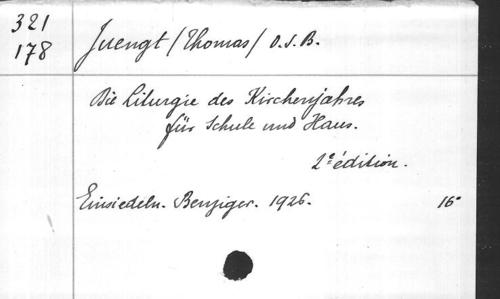 321
178
Juengt /Thomas/ O.S.B.
Die Liturgie des Kirchenjahres
für Schule und Haus.
2e édition.
Einsiedeln. Benziger. 1926. 16°